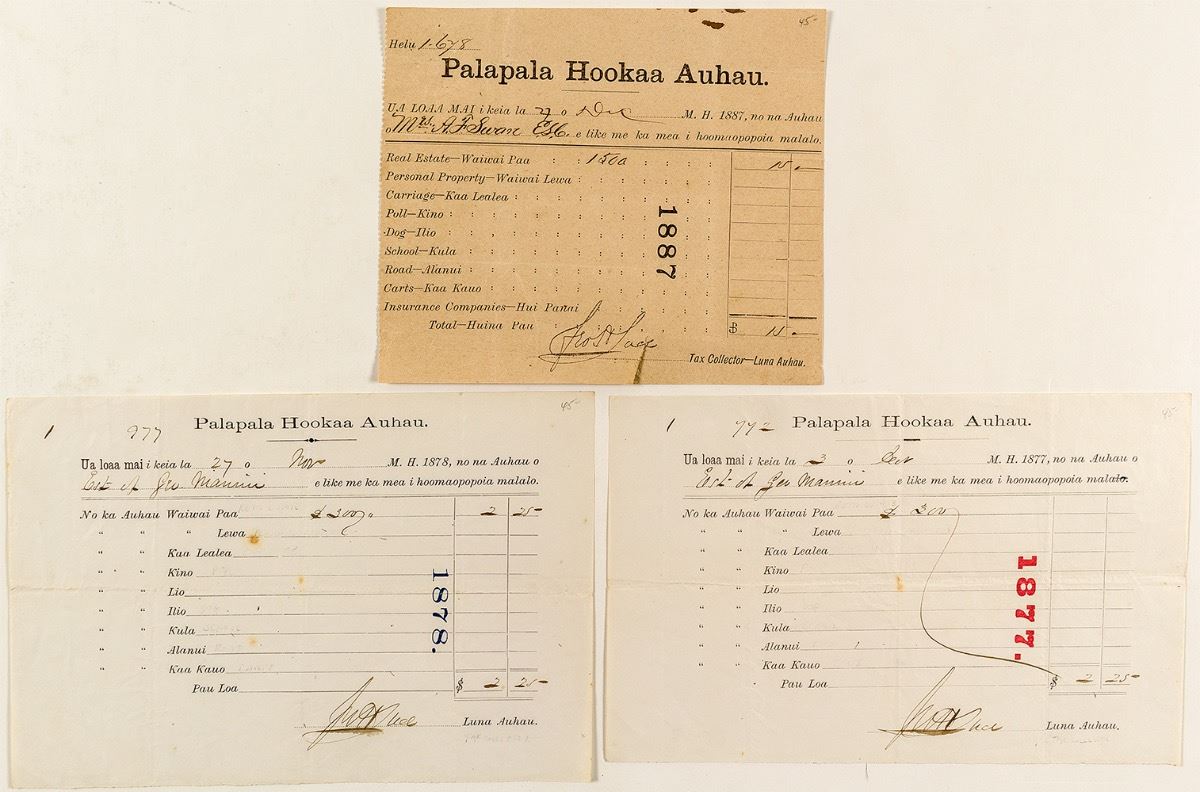 45-
Helu 1678
Palapala Hookaa Auhau.
UA LOAA MAI i keia la 27 o Dec M. H. 1887, no na Auhau
o Mrs. A. F. Swan e like me ka mea i hoomaopopoia malalo.
Real Estate—Waiwai Paa : : 1500 : : : : 15 -
Personal Property—Waiwai Lewa :
Carriage—Kaa Lealea :
Poll—Kino :
Dog—Ilio :
School—Kula :
Road—Alanui :
Carts—Kaa Kauo :
Insurance Companies—Hui Panai
Total—Huina Pau : $ 15 -
1887
Tax Collector—Luna Auhau.
45-
1 977 Palapala Hookaa Auhau.
Ua loaa mai i keia la 27 o Nov M. H. 1878, no na Auhau o
Est of Geo Manini e like me ka mea i hoomaopopoia malalo.
No ka Auhau Waiwai Paa $ 300 2 25
" " " Lewa
" " Kaa Lealea
" " Kino
" " Lio
" " Ilio
" " Kula
" " Alanui
" " Kaa Kauo
Pau Loa $ 2 25
1878.
Luna Auhau.
45-
1 772 Palapala Hookaa Auhau.
Ua loaa mai i keia la 3 o M. H. 1877, no na Auhau o
Est of Geo Manini e like me ka mea i hoomaopopoia malalo.
No ka Auhau Waiwai Paa $ 300
" " " Lewa
" " Kaa Lealea
" " Kino
" " Lio
" " Ilio
" " Kula
" " Alanui
" " Kaa Kauo
Pau Loa $ 2 25
1877.
Luna Auhau.